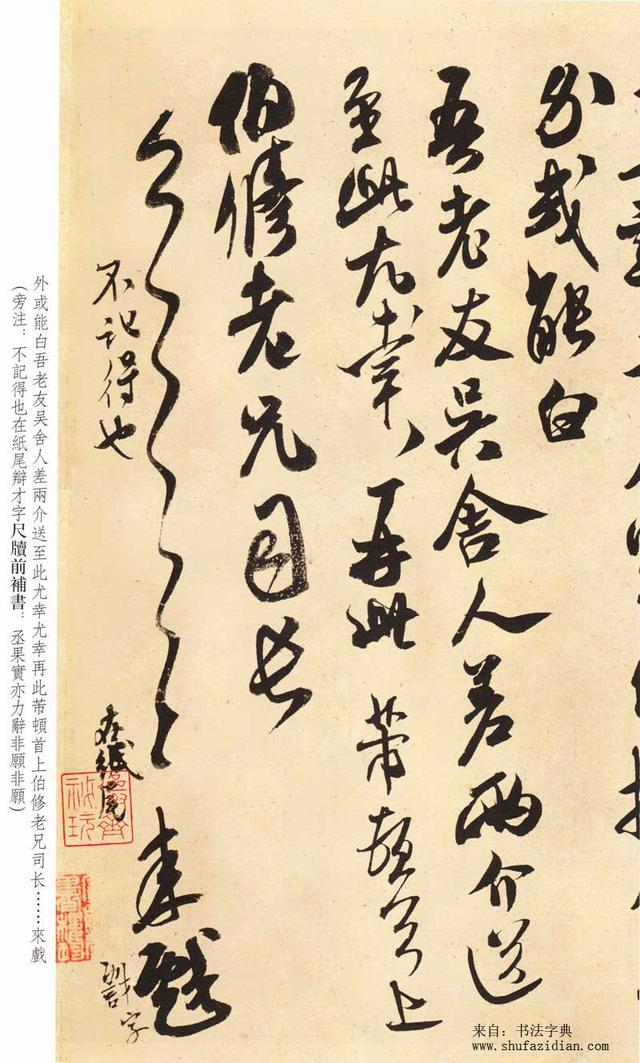 外或能白
吾老友吳舍人差兩介送
至此尤幸再此 芾頓首上
伯修老兄司长
不記得也
在紙尾
来戲
字
秘玩
外或能白吾老友吴舍人差兩介送至此尤幸尤幸再此芾頓首上伯修老兄司长……來戲
(旁注：不記得也在紙尾辯才字尺牘前補書：丞果實亦力辭非願非願)
来自：书法字典
www.shufazidian.com